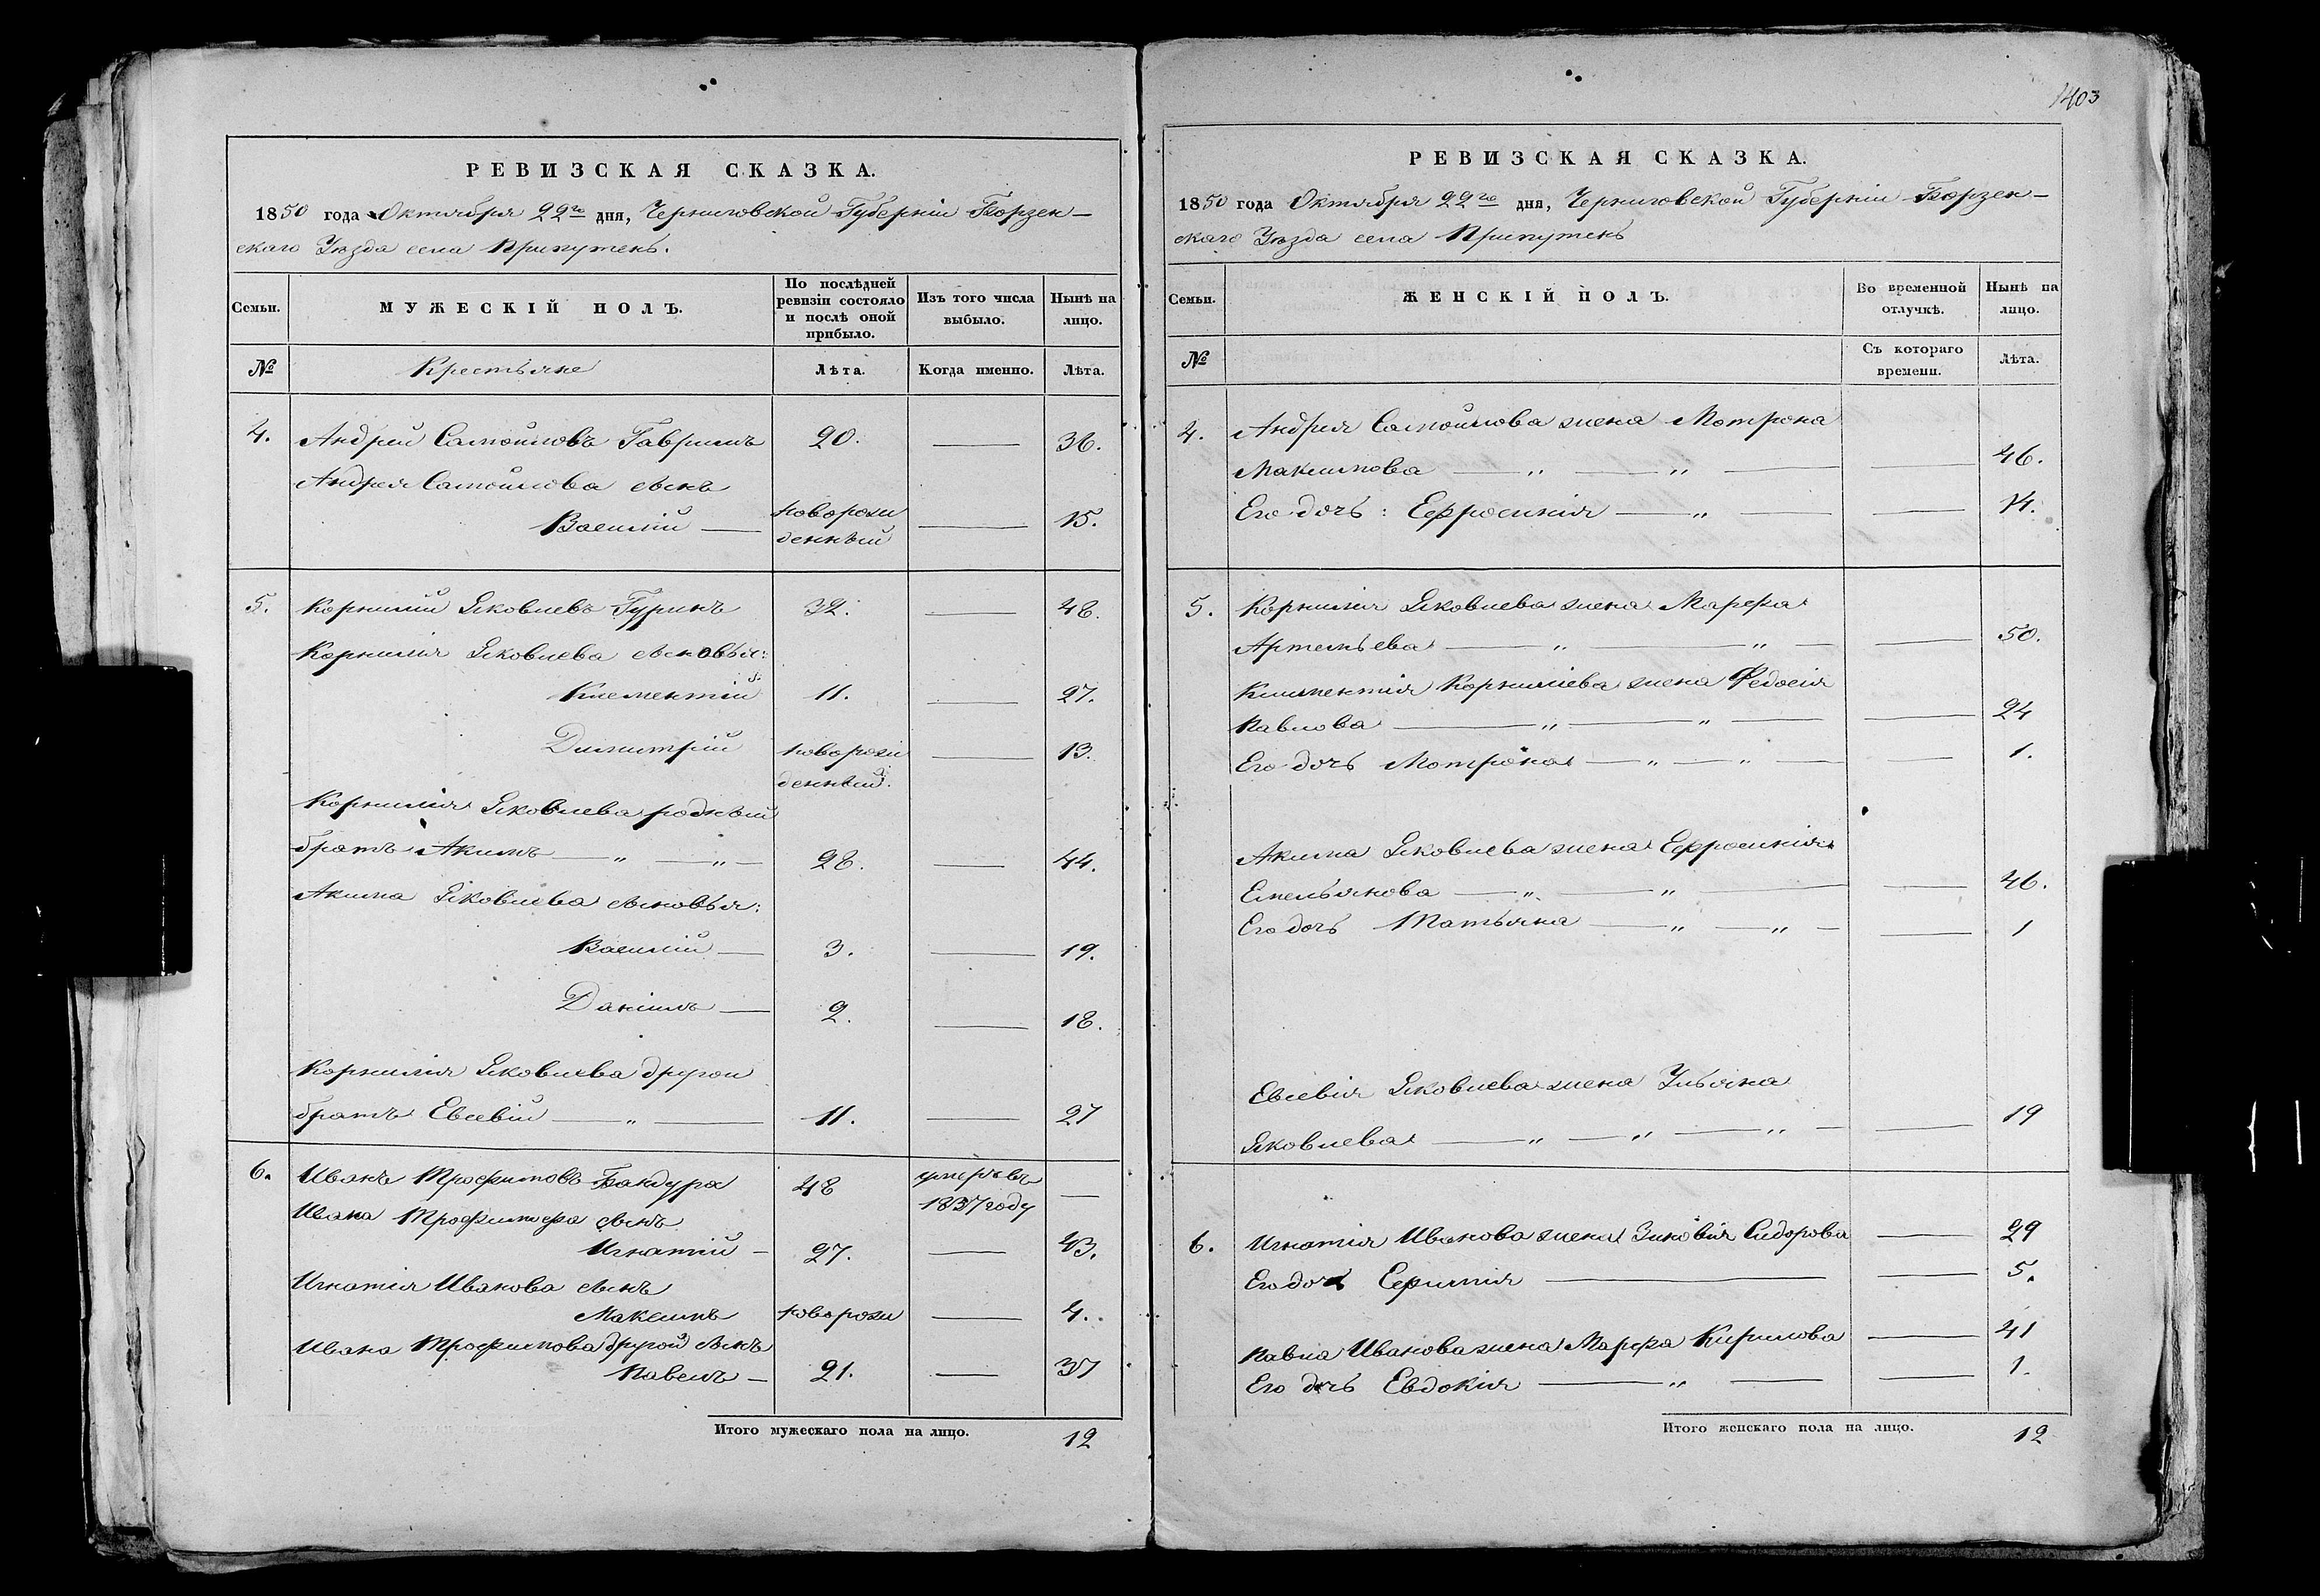 РЕВИЗСКАЯ СКАЗКА.
1850 года Октября 22го дня, Черниговской Губерніи Борзен-
скаго Уѣзда села Припутень.
Семьи.
МУЖЕСКІЙ ПОЛЪ.
По послѣдней ревизіи состояло и послѣ оной прибыло.
Изъ того числа выбыло.
Нынѣ на лицо.
№ Крестьяне Лѣта. Когда именно. Лѣта.
4. Андрей Самойловъ Гаврилъ 20. — 36.
Андрея Самойлова сынъ
Василій — новорож денный — 15.
5. Корнилій Яковлевъ Гуринъ 32. — 48.
Корнилія Яковлева сыновья:
Клементій 11. — 27.
Димитрій новорож денный. — 13.
Корнилія Яковлева родный
братъ Акимъ — „ — „ — 28. — 44.
Акима Яковлева сыновья:
Василій — 3. — 19.
Даніилъ — 2. — 18.
Корнилія Яковлева другой
братъ Евсевій — „ — 11. — 27
6. Иванъ Трофимовъ Бандура 48 умеръ въ 1837 году —
Ивана Трофимова сынъ
Игнатій — 27. — 43.
Игнатія Иванова сынъ
Максимъ новорож — 4.
Ивана Трофимова другой сынъ
Павелъ — 21. — 37
Итого мужескаго пола на лицо. 12
1403
РЕВИЗСКАЯ СКАЗКА.
1850 года Октября 22го дня, Черниговской Губерніи Борзен-
скаго Уѣзда села Припутень
Семьи.
ЖЕНСКІЙ ПОЛЪ.
Во временной отлучкѣ.
Нынѣ на лицо.
№ Съ котораго времени. Лѣта.
4. Андрея Самойлова жена Мотрона
Максимова — „ — „ — — 46.
Его дочь: Ефросинія — „ — — 14.
5. Корнилія Яковлева жена Марфа
Артемьева — „ — „ — — 50.
Климентія Корниліева жена Федосія
Павлова — „ — „ — — 24
Его дочь Мотрона — „ — „ — — 1.
Акима Яковлева жена Ефросинія
Емельянова — „ — „ — — 46.
Его дочь Татьяна — „ — „ — — 1
Евсевія Яковлева жена Ульяна
Яковлева — „ — „ — „ — — 19
6. Игнатія Иванова жена Зиновія Сидорова — 29
Его дочь Ефимія — — 5.
Павла Иванова жена Марфа Кирилова — 41
Его дочь Евдокія — „ — — 1.
Итого женскаго пола на лицо. 12